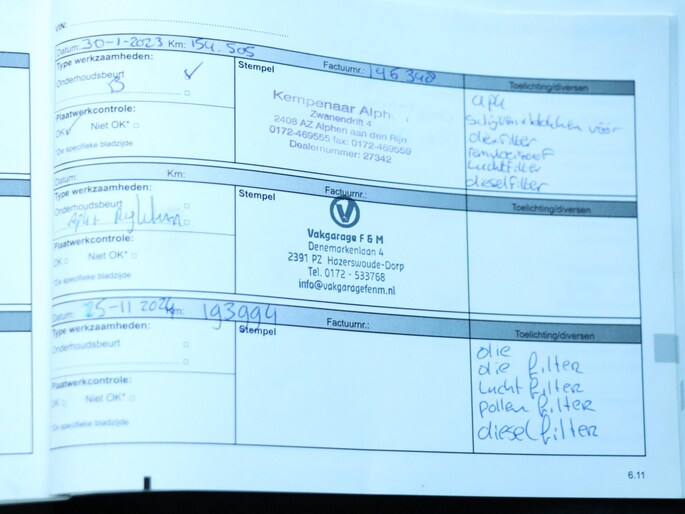 VIN:
Datum: 30-1-2023 Km: 154.505
Type werkzaamheden:
Stempel
Factuurnr.: 146348
Toelichting/diversen
Onderhoudsbeurt
B
Plaatwerkcontrole:
OK Niet OK*
Zie specifieke bladzijde
Kempenaar Alph
Zwanendrift 4
2408 AZ Alphen aan den Rijn
0172-469555 fax: 0172-469559
Dealernummer: 27342
apk
schijven + blokken vóór
oliefilter
remvloeistof
Luchtfilter
dieselfilter
Datum: Km:
Type werkzaamheden:
Stempel
Factuurnr.:
Toelichting/diversen
Onderhoudsbeurt
Plaatwerkcontrole:
OK Niet OK*
Zie specifieke bladzijde
Vakgarage F & M
Denemarkenlaan 4
2391 PZ Hazerswoude-Dorp
Tel. 0172 - 533768
info@vakgaragefenm.nl
Datum: 25-11 2024 Km: 193994
Type werkzaamheden:
Stempel
Factuurnr.:
Toelichting/diversen
Onderhoudsbeurt
Plaatwerkcontrole:
OK Niet OK*
Zie specifieke bladzijde
olie
olie filter
Lucht filter
pollen filter
diesel filter
6.11